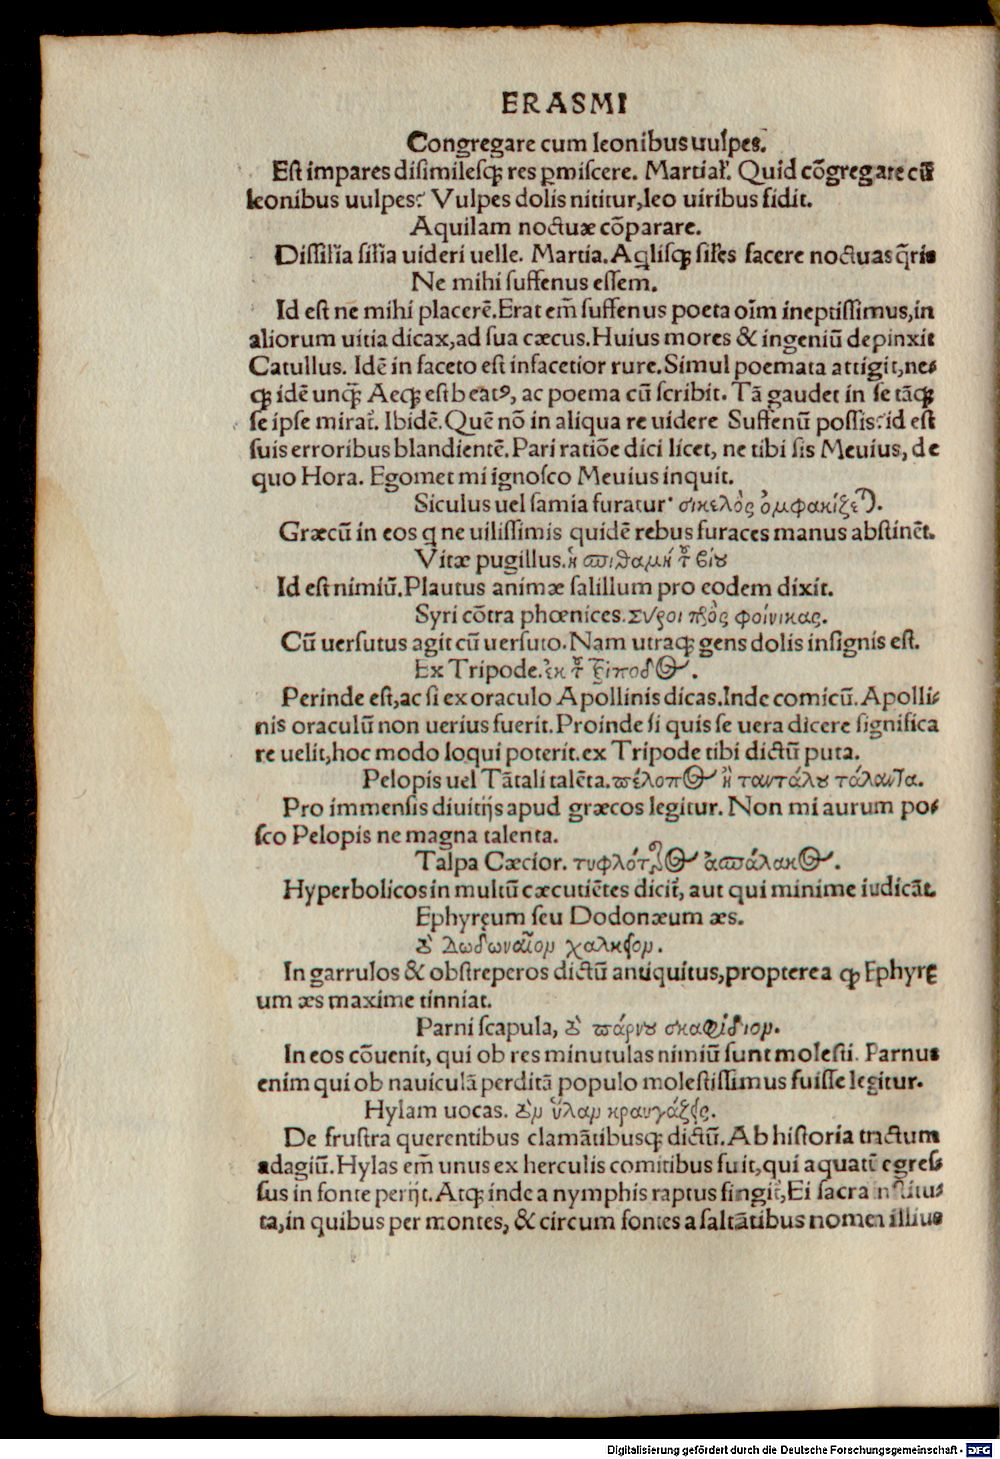 ERASMI
Congregare cum leonibus uulpes.
Est impares disimilesq; res ꝑmiscere. Martial̃. Quid cõgregare cũ
leonibus uulpes? Vulpes dolis nititur, leo uiribus fidit.
Aquilam noctuæ cõparare.
Dissil̃ia sil̃ia uideri uelle. Martia. Aqlisq; sil̃es facere noctuas q̃ris
Ne mihi suffenus essem.
Id est ne mihi placerẽ. Erat em̃ suffenus poeta oĩm ineptissimus, in
aliorum uitia dicax, ad sua cæcus. Huius mores & ingeniũ depinxit
Catullus. Idẽ in faceto est infacetior rure. Simul poemata attigit, ne⸗
q; idẽ unq̃; Aeq; est beatꝰ, ac poema cũ scribit. Tã gaudet in se tãq;
se ipse mirat̃. Ibidẽ. Quẽ nõ in aliqua re uidere Suffenũ possis? id est
suis erroribus blandientẽ. Pari ratiõe dici licet, ne tibi sis Meuius, de
quo Hora. Egomet mi ignosco Meuius inquit.
Siculus uel samia furatur· σικελὸς ὀμφακίζε
Græcũ in eos q ne uilissimis quidẽ rebus furaces manus abstinẽt.
Vitæ pugillus. ἡ ϖιθαμὴ τ͂ βίȣ
Id est nimiũ. Plautus animæ salillum pro eodem dixit.
Syri cõtra phœnices. Σύροι πρὸς φοίνικας.
Cũ uersutus agit cũ uersuto. Nam utraq; gens dolis insignis est.
Ex Tripode. ἐκ τ͂ τρίποδος.
Perinde est, ac si ex oraculo Apollinis dicas. Inde comicũ. Apolli⸗
nis oraculũ non uerius fuerit. Proinde si quis se uera dicere significa
re uelit, hoc modo loqui poterit. ex Tripode tibi dictũ puta.
Pelopis uel Tãtali talẽta. ϖέλοπος ἢ ταντάλȣ τάλαντα.
Pro immensis diuitijs apud græcos legitur. Non mi aurum po⸗
sco Pelopis ne magna talenta.
Talpa Cæcior. τυφλότερος ἀσϖάλακος.
Hyperbolicos in multũ cæcutiẽtes dicit̃, aut qui minime iudicãt.
Ephyręum seu Dodonæum æs.
τὸ Δωδωναῖομ χαλκεῖομ.
In garrulos & obstreperos dictũ antiquitus, propterea ꝙ Ephyrę
um æs maxime tinniat.
Parni scapula, τὸ ϖάρνȣ σκαφίδιομ.
In eos cõuenit, qui ob res minutulas nimiũ sunt molesti. Parnus
enim qui ob nauiculã perditã populo molestissimus fuisse legitur.
Hylam uocas. τὸμ ὕλαμ κραυγάζεις.
De frustra querentibus clamãtibusq; dictũ. Ab historia tractum
adagiũ. Hylas em̃ unus ex herculis comitibus fuit, qui aquatũ egres⸗
sus in fonte perijt. Atq; inde a nymphis raptus fingit̃, Ei sacra institu⸗
ta, in quibus per montes, & circum fontes a saltãtibus nomen illius
Digitalisierung gefördert durch die Deutsche Forschungsgemeinschaft - DFG